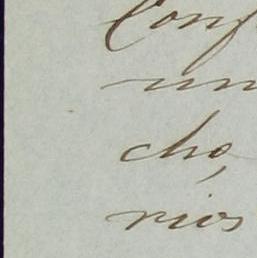 Conf
un
cho,
rios